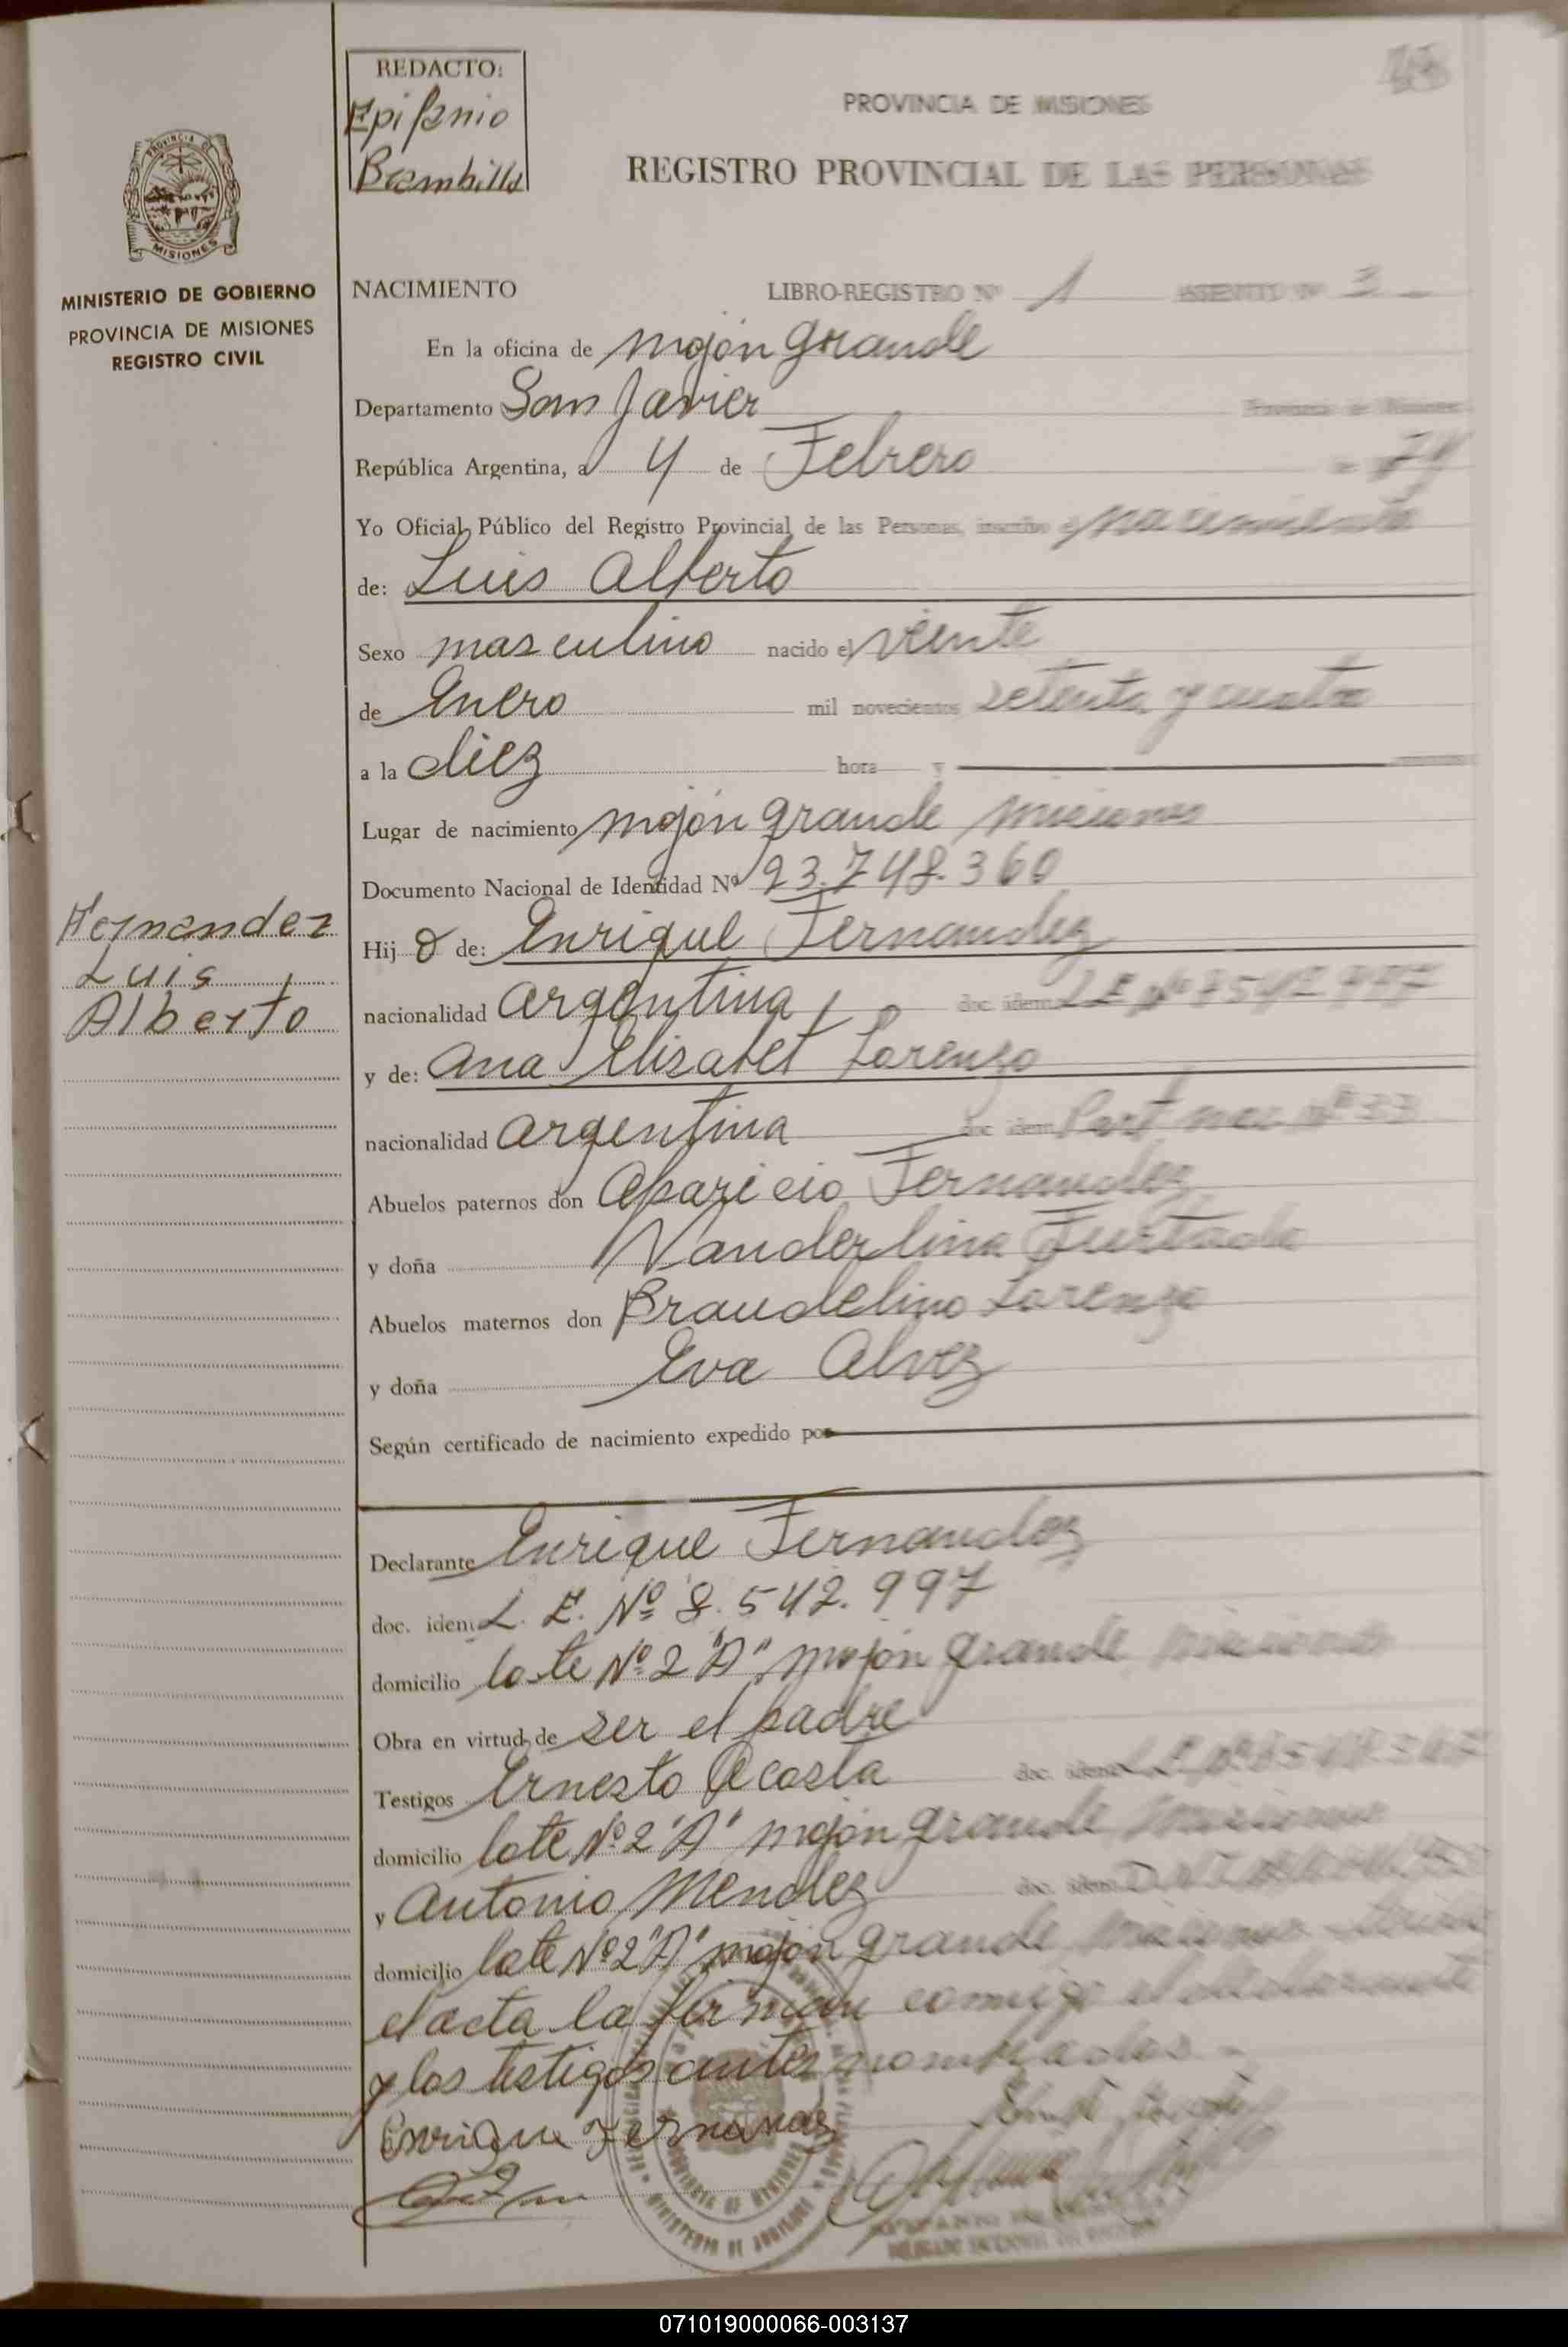 REDACTO:
Epifanio
Brambilla
PROVINCIA DE MISIONES
REGISTRO PROVINCIAL DE LAS PERSONAS
PROVINCIA DE
MISIONES
MINISTERIO DE GOBIERNO
PROVINCIA DE MISIONES
REGISTRO CIVIL
NACIMIENTO LIBRO-REGISTRO Nº 1 ASIENTO Nº 3
En la oficina de mojón grande
Departamento San Javier Provincia de Misiones
República Argentina, a 4 de Febrero de 74
Yo Oficial Público del Registro Provincial de las Personas, inscribo el nacimiento
de: Luis Alberto
Sexo masculino nacido el veinte
de Enero mil novecientos setenta y cuatro
a la diez hora y
Lugar de nacimiento mojón grande misiones
Documento Nacional de Identidad Nº 23.748.360
Fernandez
Luis
Alberto
Hij o de: Enrique Fernandez
nacionalidad argentina doc. iden. L E Nº 8542997
y de: Ana Elisabet Lorenzo
nacionalidad argentina doc. iden. Part nac nº 33
Abuelos paternos don Aparicio Fernandez
y doña Vanderlina Furtado
Abuelos maternos don Braudelino Lorenzo
y doña Eva Alvez
Según certificado de nacimiento expedido por
Declarante Enrique Fernandez
doc. iden. L. E. Nº 8.542.997
domicilio lote Nº 2 "A" mojón grande misiones
Obra en virtud de ser el padre
Testigos Ernesto Acosta doc. iden. L E Nº
domicilio lote Nº 2 "A" mojón grande misiones
y Antonio Mendez doc. iden. D N I
domicilio lote Nº 2 "A" mojón grande misiones
el acta la firman comigo el declarante
y los testigos antes nombrados.-
Enrique Fernandez
071019000066-003137